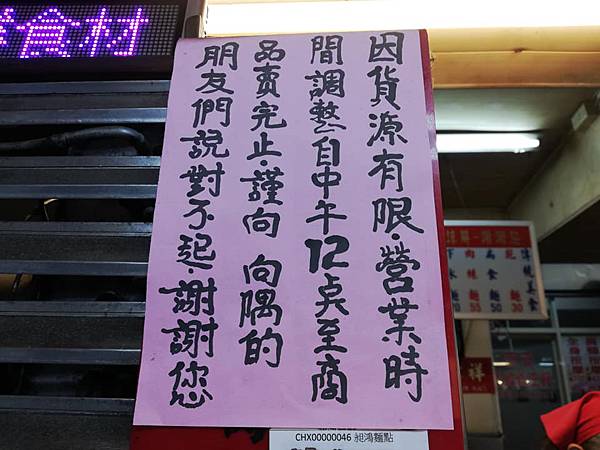 食材
因貨源有限.營業時
間調整自中午12点至商
品賣完止.謹向 向隅的
朋友們說對不起.謝謝您
CHX00000046 昶鴻麵點